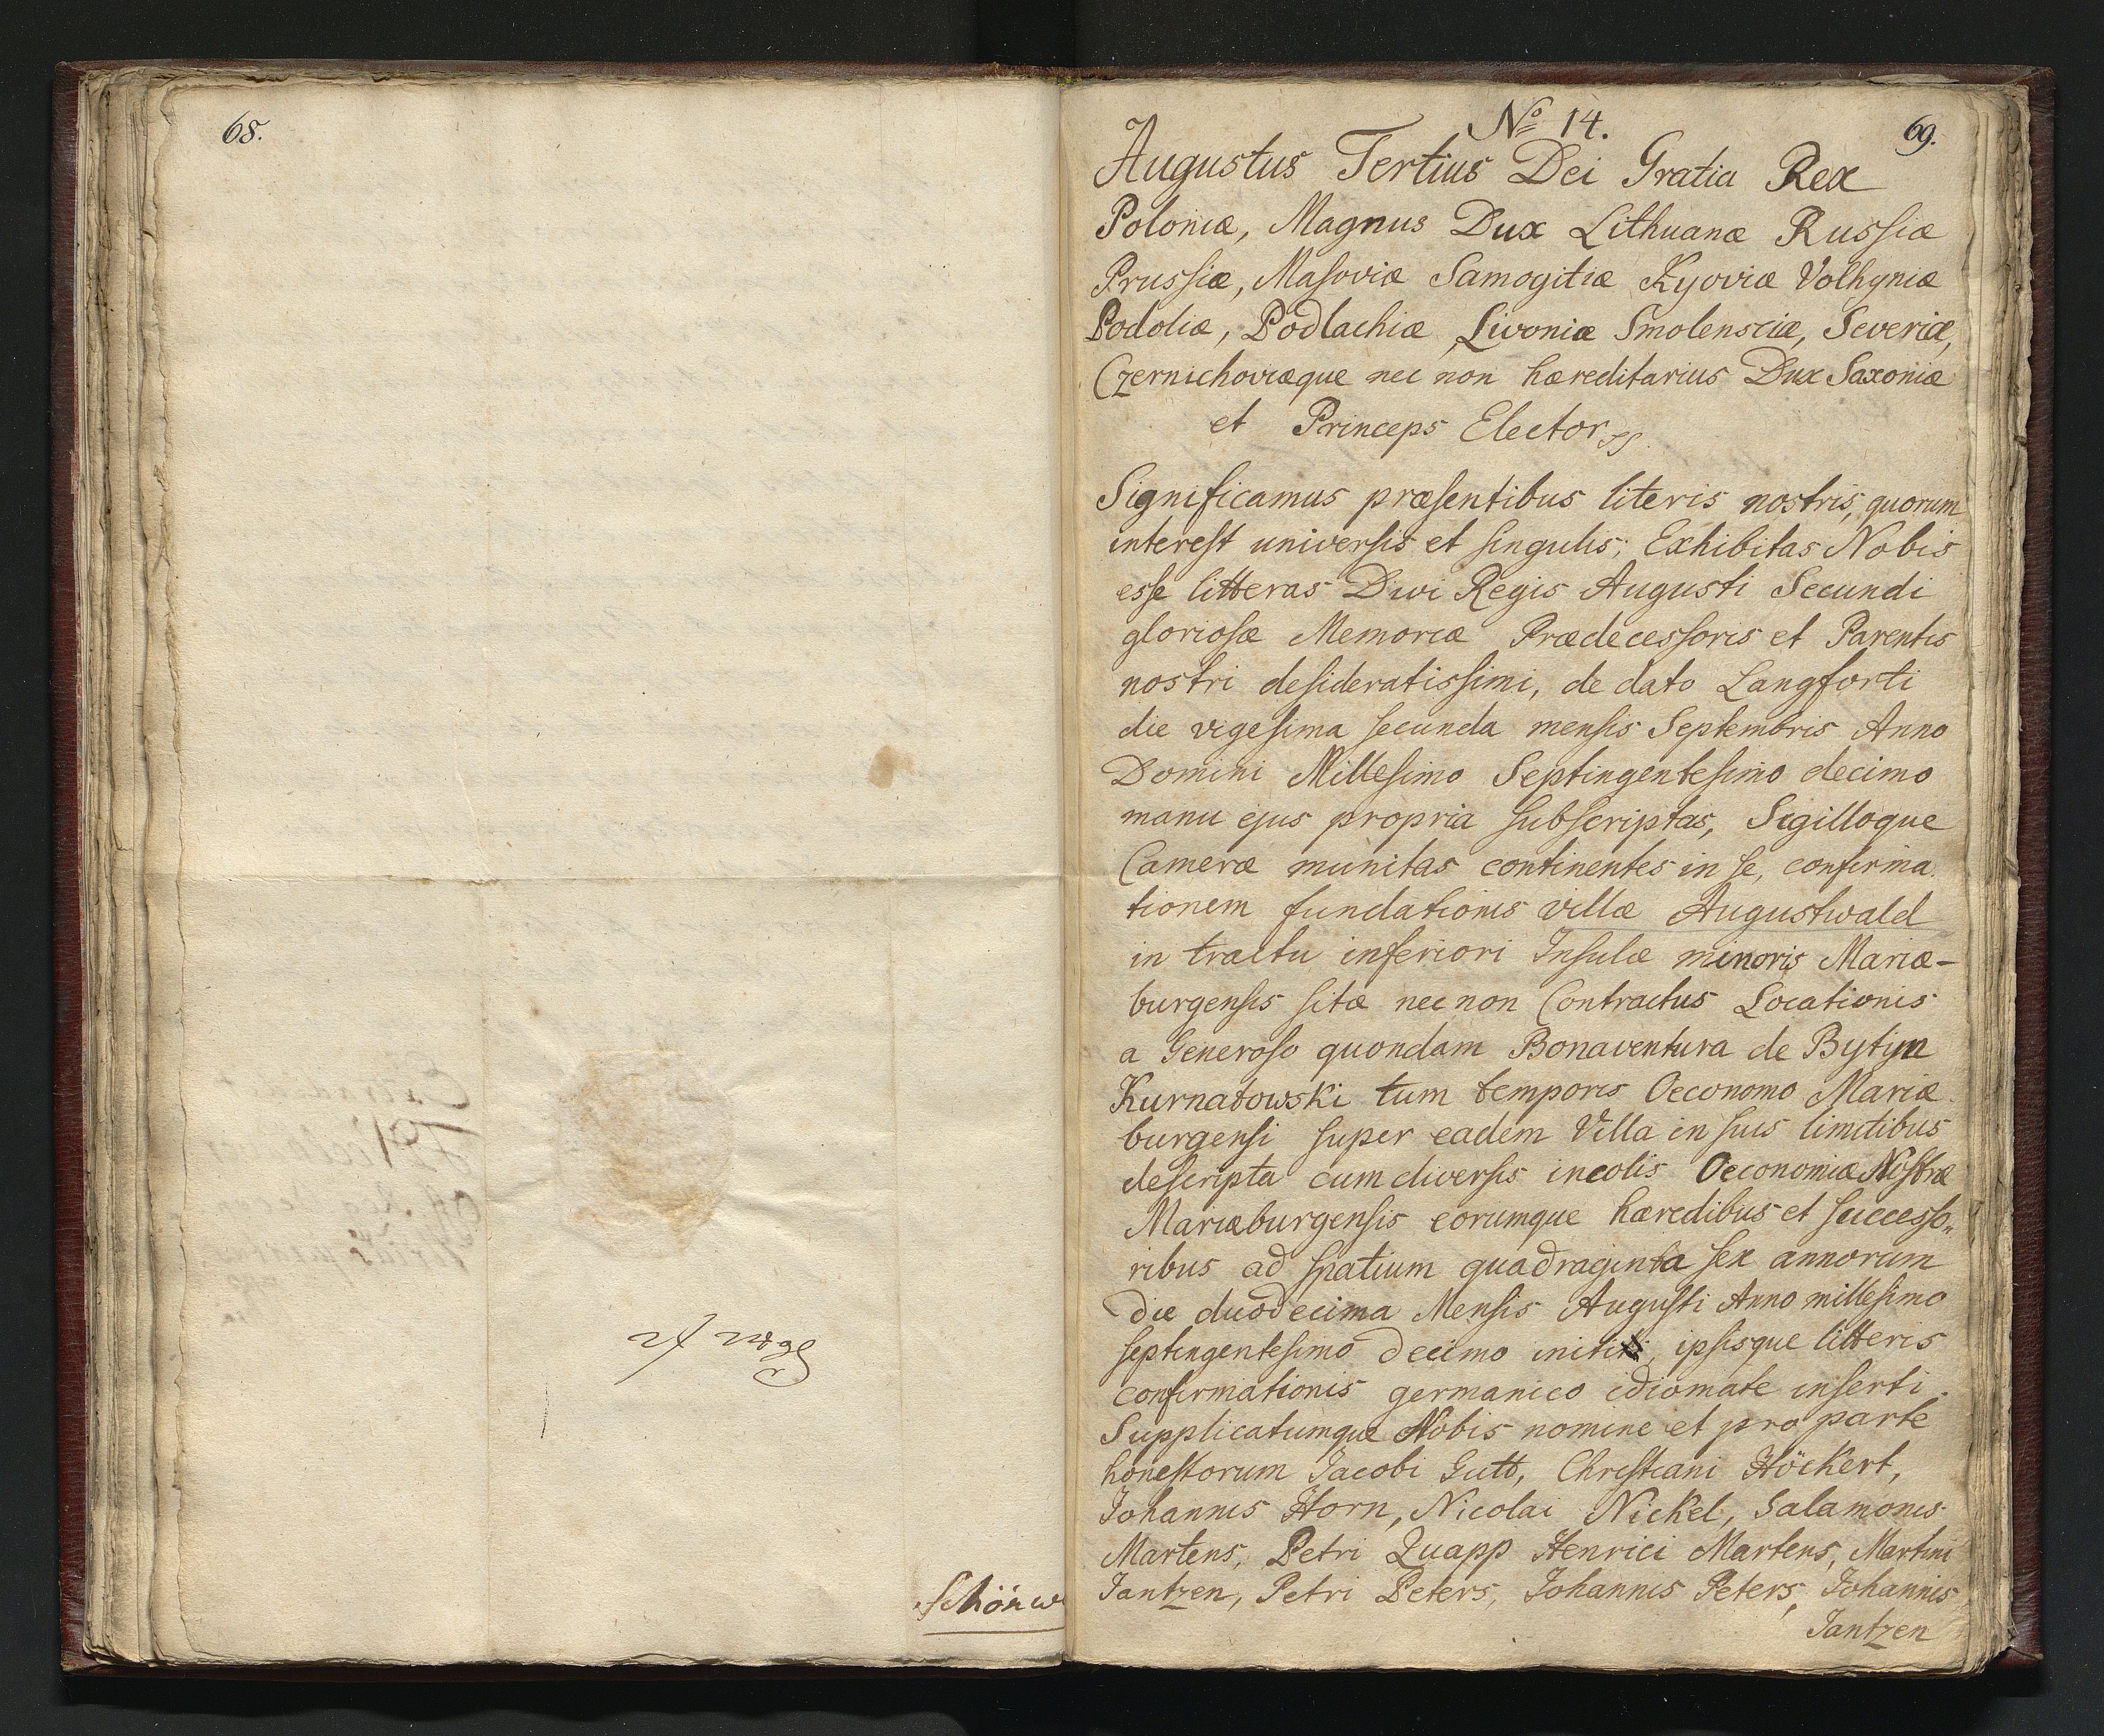 68.
Schönw
No 14.
69.
Augustus Tertius Dei Gratia Rex
Poloniæ, Magnus Dux Lithuanæ Russiæ
Prussiæ, Masoviæ Samogitiæ Kyoviæ Volhyniæ
Podoliæ, Podlachiæ, Livoniæ Smolensciæ, Severiæ,
Czernichoviæque nec non hæreditarius Dux Saxoniæ
et Princeps Elector
Significamus præsentibus literis nostris, quorum
interest universis et singulis; Exhibitas Nobis
esse litteras Divi Regis Augusti Secundi
gloriosæ Memoriæ Prædecessoris et Parentis
nostri desideratissimi, de dato Langforti
die vigesima secunda mensis Septembris Anno
Domini Millesimo Septingentesimo decimo
manu ejus propria subscriptas, Sigilloque
Cameræ munitas continentes in se, confirma.
tionem fundationis villæ Augustwald
in tractu inferiori Insulæ minoris Mariæ-
burgensis sitæ nec non Contractus Locationis
a Generoso quondam Bonaventura de Bytyn
Kurnatowski tum temporis Oeconomo Mariæ.
burgensi super eadem Villa in suis limitibus
descripta cum diversis incolis Oeconomiæ Nostræ
Mariæburgensis eorumque hæredibus et successo„
ribus ad spatium quadraginta sex annorum
die duodecima Mensis Augusti Anno millesimo
septingentesimo decimo initi, ipsisque litteris
confirmationis germanico idiomate inserti.
Supplicatumque Nobis nomine et pro parte
honestorum Jacobi Gutt, Christiani Höckert,
Johannis Horn, Nicolai Nickel, Salamonis
Martens, Petri Quapp Henrici Martens, Martini
Jantzen, Petri Peters, Johannis Peters, Johannis
Jantzen